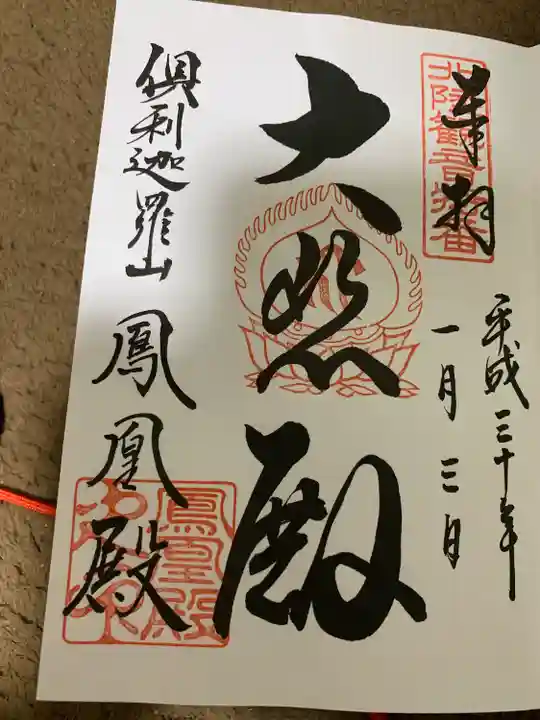 奉拝
北陸観音霊場
平成三十年
一月三日
大悲殿
倶利迦羅山
鳳凰殿
鳳凰殿